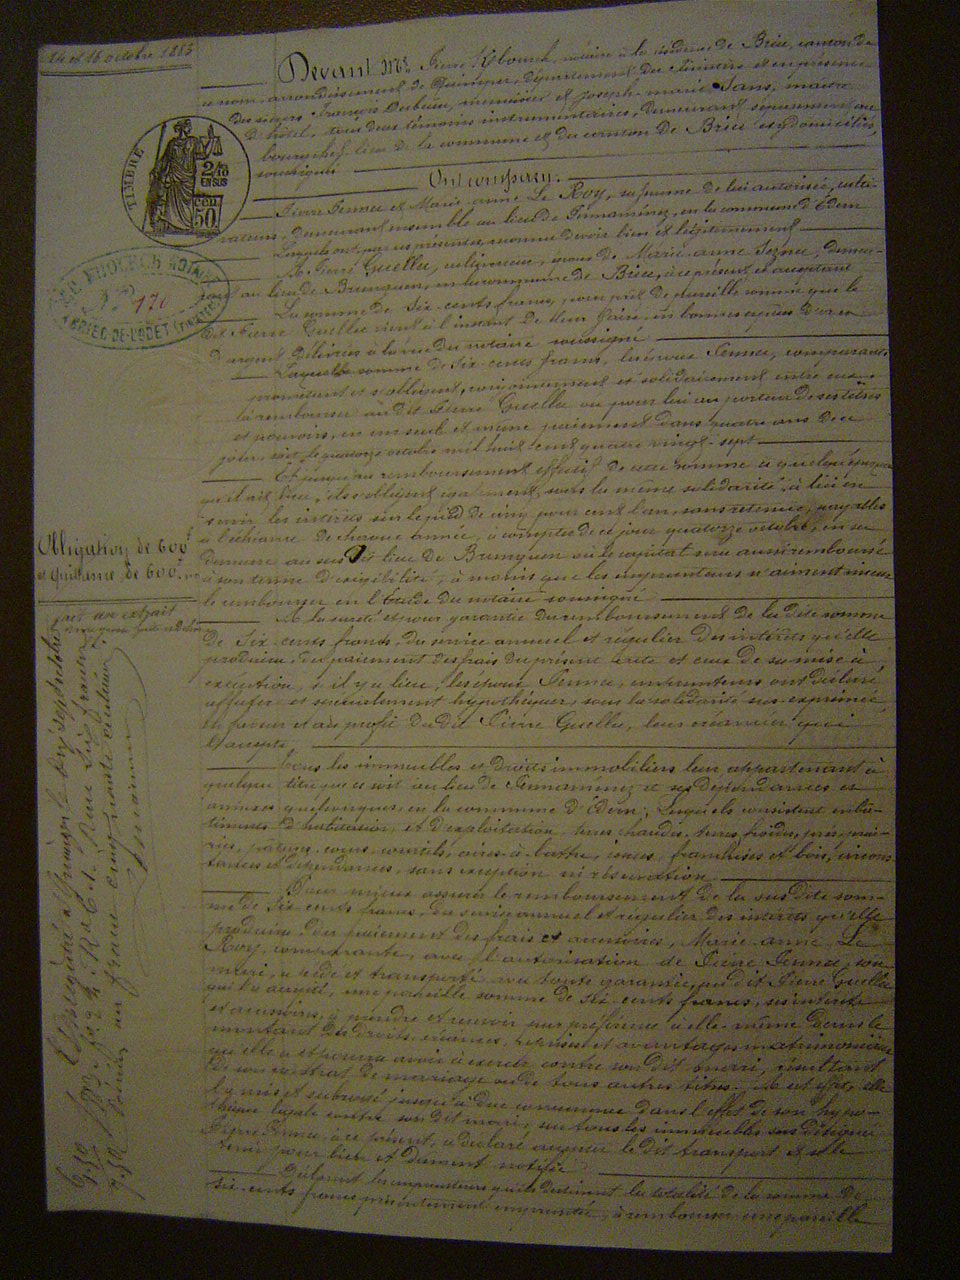 14 et 16 octobre 1883
Devant Me Pierre notaire à la résidence de Briec, canton de
ce nom, arrondissement de Quimper, département du Finistère et en présence
des sieurs François menuisier et Joseph Marie Jans, maître
d'hôtel, tous deux témoins instrumentaires, demeurant séparément au
bourg chef-lieu de la commune et du canton de Briec et y domiciliés,
soussignés
TIMBRE
2/10
EN SUS
50
Ont comparu:
Pierre Fennec et Marie-anne Le Roy, sa femme de lui autorisée, culti-
vateurs, demeurant ensemble au lieu de en la commune d'Edern
Lesquels ont, par ces présentes, reconnu devoir bien et légitimement
A Pierre Guellec, cultivateur, époux de Marie-anne demeu-
rant au lieu de Brunguen, en la commune de Briec, ici présent et acceptant
NOTAIRE
170
BRIEC-DE-L'ODET (FINISTERE)
La somme de Six cents francs, pour prêt de pareille somme que le
dit Pierre Guellec vient à l'instant de leur faire, en bonnes espèces d'or et
d'argent délivrées à la vue du notaire soussigné
Laquelle somme de Six cents francs, les époux Fennec, comparants,
promettent et s'obligent, conjointement et solidairement entre eux,
à rembourser au dit Pierre Guellec ou pour lui au porteur de ses titres
et pouvoirs, en un seul et même paiement dans quatre ans de ce
jour, soit le quatorze octobre mil huit cent quatre vingt-sept
Et jusqu'au remboursement effectif de cette somme à quelque époque
qu'il ait lieu, ils s'obligent également, sous la même solidarité, à lui en
servir les intérêts sur le pied de cinq pour cent l'an, sans retenue, payables
à l'échéance de chaque année, à compter de ce jour quatorze octobre, en sa
demeure au susdit lieu de Brunguen où le capital sera aussi remboursé
à son terme d'exigibilité, à moins que les emprunteurs n'aiment mieux
le rembourser en l'Etude du notaire soussigné
Obligation de 600f
et Quittance de 600f
fait un extrait
A la sureté et pour garantie du remboursement de la dite somme
de Six cents francs, du service annuel et régulier des intérêts qu'elle
produira, du paiement des frais du présent acte et ceux de sa mise à
exécution, s'il y a lieu, les époux Fennec, emprunteurs ont déclaré
affecter et spécialement hypothéquer, sous la solidarité sus exprimée,
en faveur et au profit du dit Pierre Guellec, leur créancier, qui
l'accepte,
Tous les immeubles et droits immobiliers leur appartenant à
quelque titre que ce soit au lieu de et ses dépendances et
annexes quelconques, en la commune d'Edern; Lesquels consistent en bâ-
timents d'habitation et d'exploitation, terres chaudes, terres froides, prés, prai-
ries, parcs, cours, courtils, aires à battre, issues, franchises et bois, circons-
tances et dépendances, sans exception ni réservation.
Pour mieux assurer le remboursement de la susdite som-
me de Six cents francs, du service annuel et régulier des intérêts qu'elle
produira du paiement des frais et accessoires, Marie-anne Le
Roy, comparante, avec l'autorisation de Pierre Fennec, son
mari, a cédé et transporté avec toute garantie, au dit Pierre Guellec
qui l'a accepté, une pareille somme de Six cents francs, ses intérêts
et accessoires, à prendre et recevoir par préférence à elle-même dans le
montant des droits, créances, reprises et avantages matrimoniaux
qu'elle a et pourra avoir à exercer contre son dit mari, résultant
de son contrat de mariage ou de tous autres titres. A cet effet, elle
l'a mis et subrogé jusqu'à due concurrence dans l'effet de son hypo-
thèque légale contre son dit mari, sur tous les immeubles sus désignés
Pierre Fennec, à ce présent, a déclaré accepter le dit transport et se le
tenir pour bien et dûment notifié
Déclarent les emprunteurs qu'ils destinent la totalité de la somme de
six cents francs présentement empruntée, à rembourser une pareille
Enregistré à Quimper le dix sept octobre
1883, Reçu six francs
Décimes un franc cinquante centimes
6.00
1.50
7.50